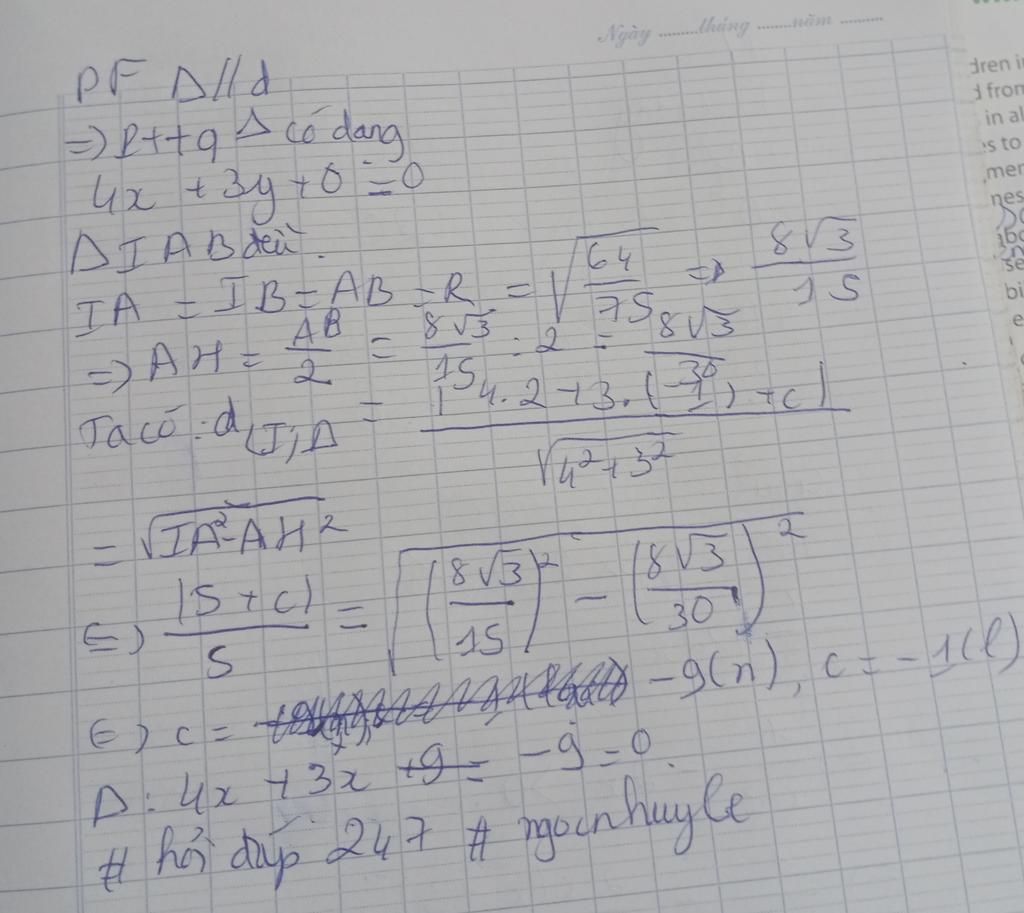 Ngày .........tháng .........năm .........
PF Δ // d
=> Pttq Δ có dang
4x + 3y + 0 = 0
Δ IAB đều.
IA = IB = AB = R = √(64/75) => 8√3/15
=> AH = AB/2 = 8√3/15 : 2 = 8√3/30
Ta có : d(I; Δ = |4.2 + 3.(-1) + c| / √(4² + 3²)
= √(IA² - AH²
<=> |5 + c|/5 = √((8√3/15)² - (8√3/30)²
<=> c = -9(n), c = -1(l)
Δ : 4x + 3x +9 = -9 = 0
# hỏi đáp 247 # ngocnhuyle
dren i
d from
in al
s to
mer
nes
se
bi
e